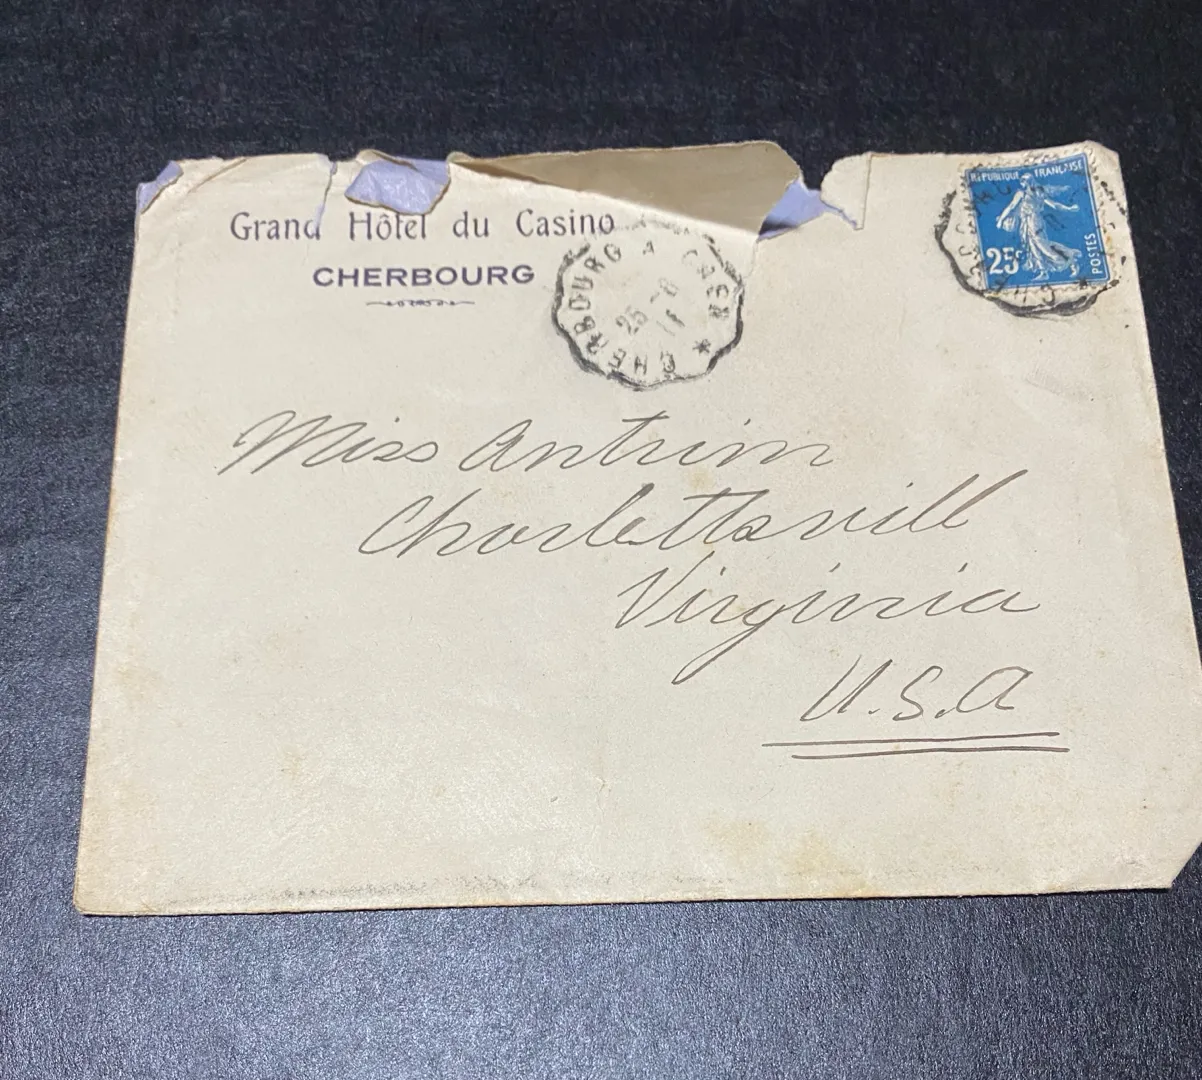 Grand Hôtel du Casino
CHERBOURG
CHERBOURG A CAEN *
25 -8
11
RÉPUBLIQUE FRANÇAISE
25c
POSTES
Miss Antrim
Charlettsvill
Virginia
U.S.A